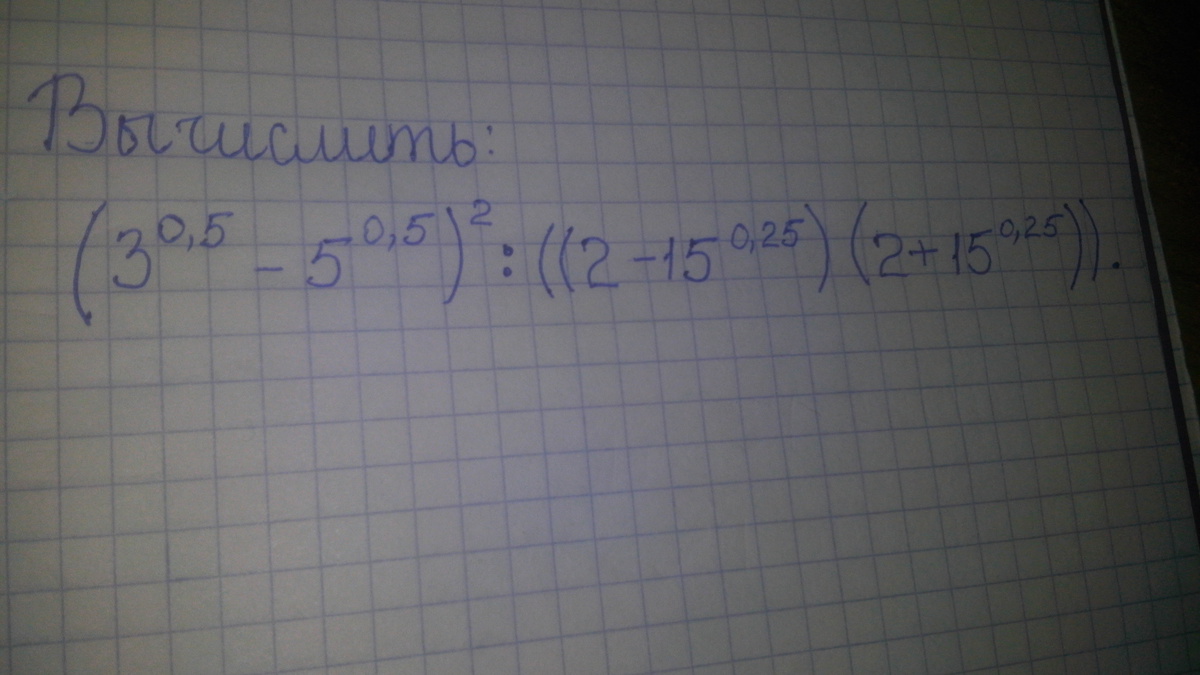 Вычислить:
(3^0,5 - 5^0,5)^2 : ((2-15^0,25)(2+15^0,25)).